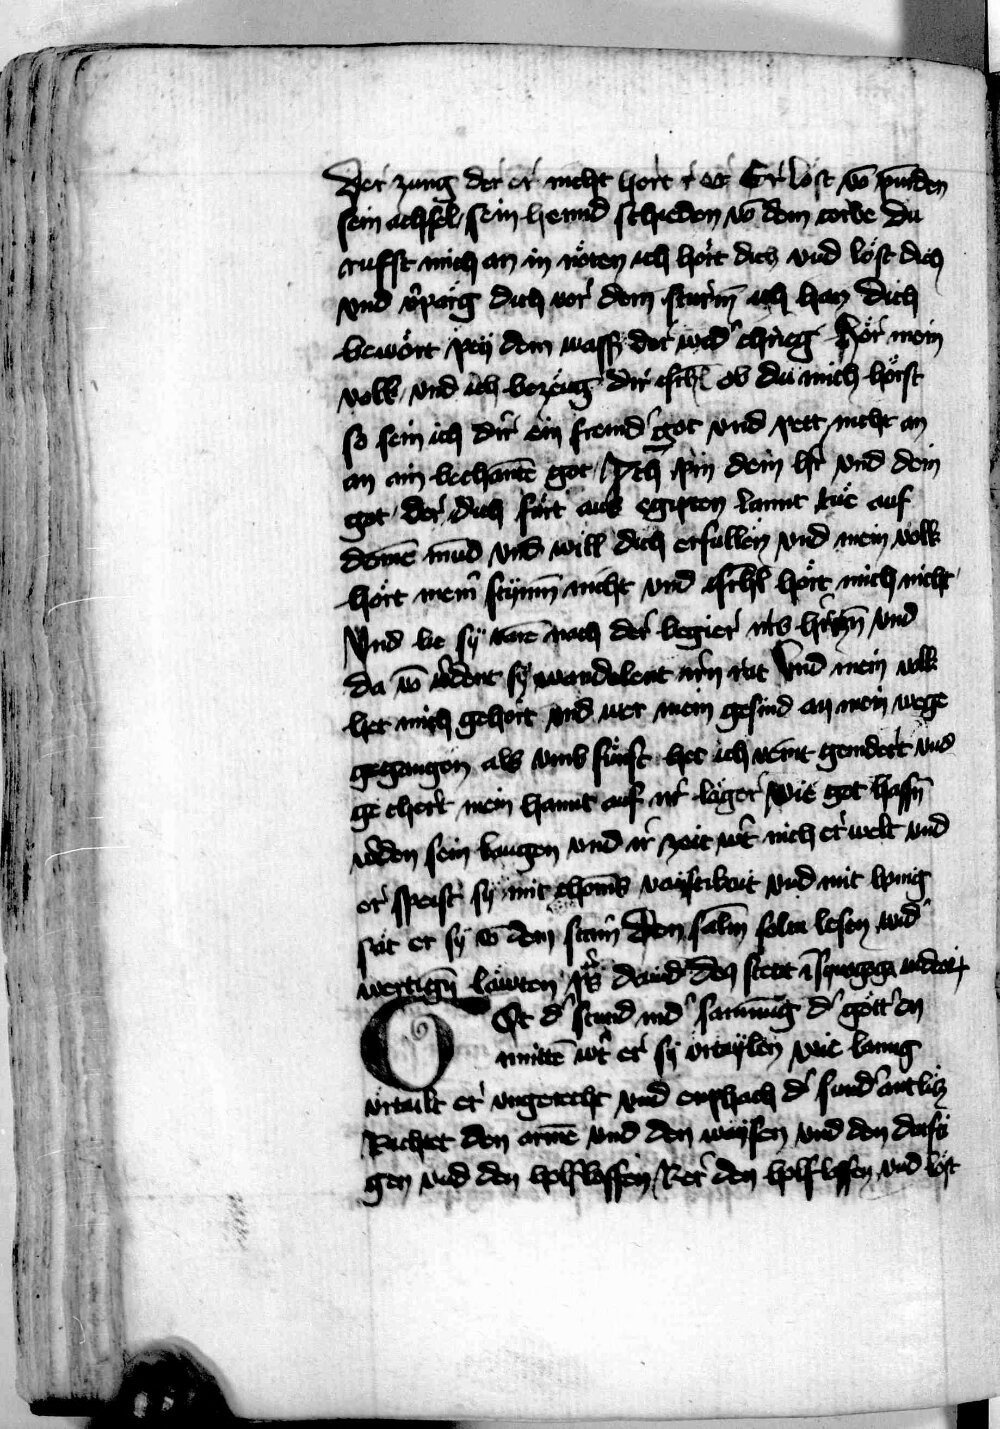 Der zung der er nicht hort r er Er löst võ pürden
sein achsel sein hennd schieden võ dem corbe Du
rufst mich an in nöten ich hört dich vnd löst dich
vnd v̾parg dich vor dem sturm̄ ich han dich
bewört pey dem wass̾ der wid̾ chrieg Hör mein
volk vnd ich bezeug dir isrl̄ ob du mich hörst
so sein ich dir ein fremd̾ got vnd pett nicht an
an ain bechantē got Ich pin dein hr̄ vnd dein
got der dich fürt aus egipten lannt tue auf
deinē mūd vnd will dich erfullen vnd mein volk
hört mein̄ stymm nicht vnd isrhl̄ hört mich nicht
Vnd lie sy varē nach der begier irs hercz̄n vnd
da võ w̾dent sy wandelent irn rat Vnd mein volk
het mich gehört vnd wer mein gesind an mein wege
gegangen als vmb sünst het ich ir veint genidert vnd
ge chert mein hannt auf ir läger Wie got hass̄n
w̾den sein laugen vnd ir zeit wirt nich er welt vnd
er speist sy mit chorns vaistikait vnd mit honig
sat er sy võ dem stain̄ Den salm̄ soltu lesen wid̾
wertign̄ läwten ps̄ dauid deus stetit ī synagoga deor̄
Got d̾ stund in d̾ samnūg d̾ gött̾ en
mittē wirt er sy vrtaylen Wie lanng
vrtailt er vngerecht vnd emphach d̾ sund̾ antlücz
Richtet den armē vnd den waysen vnd den durfti
gen vnd den holflossen Ret̾ den holflossen vnd löst